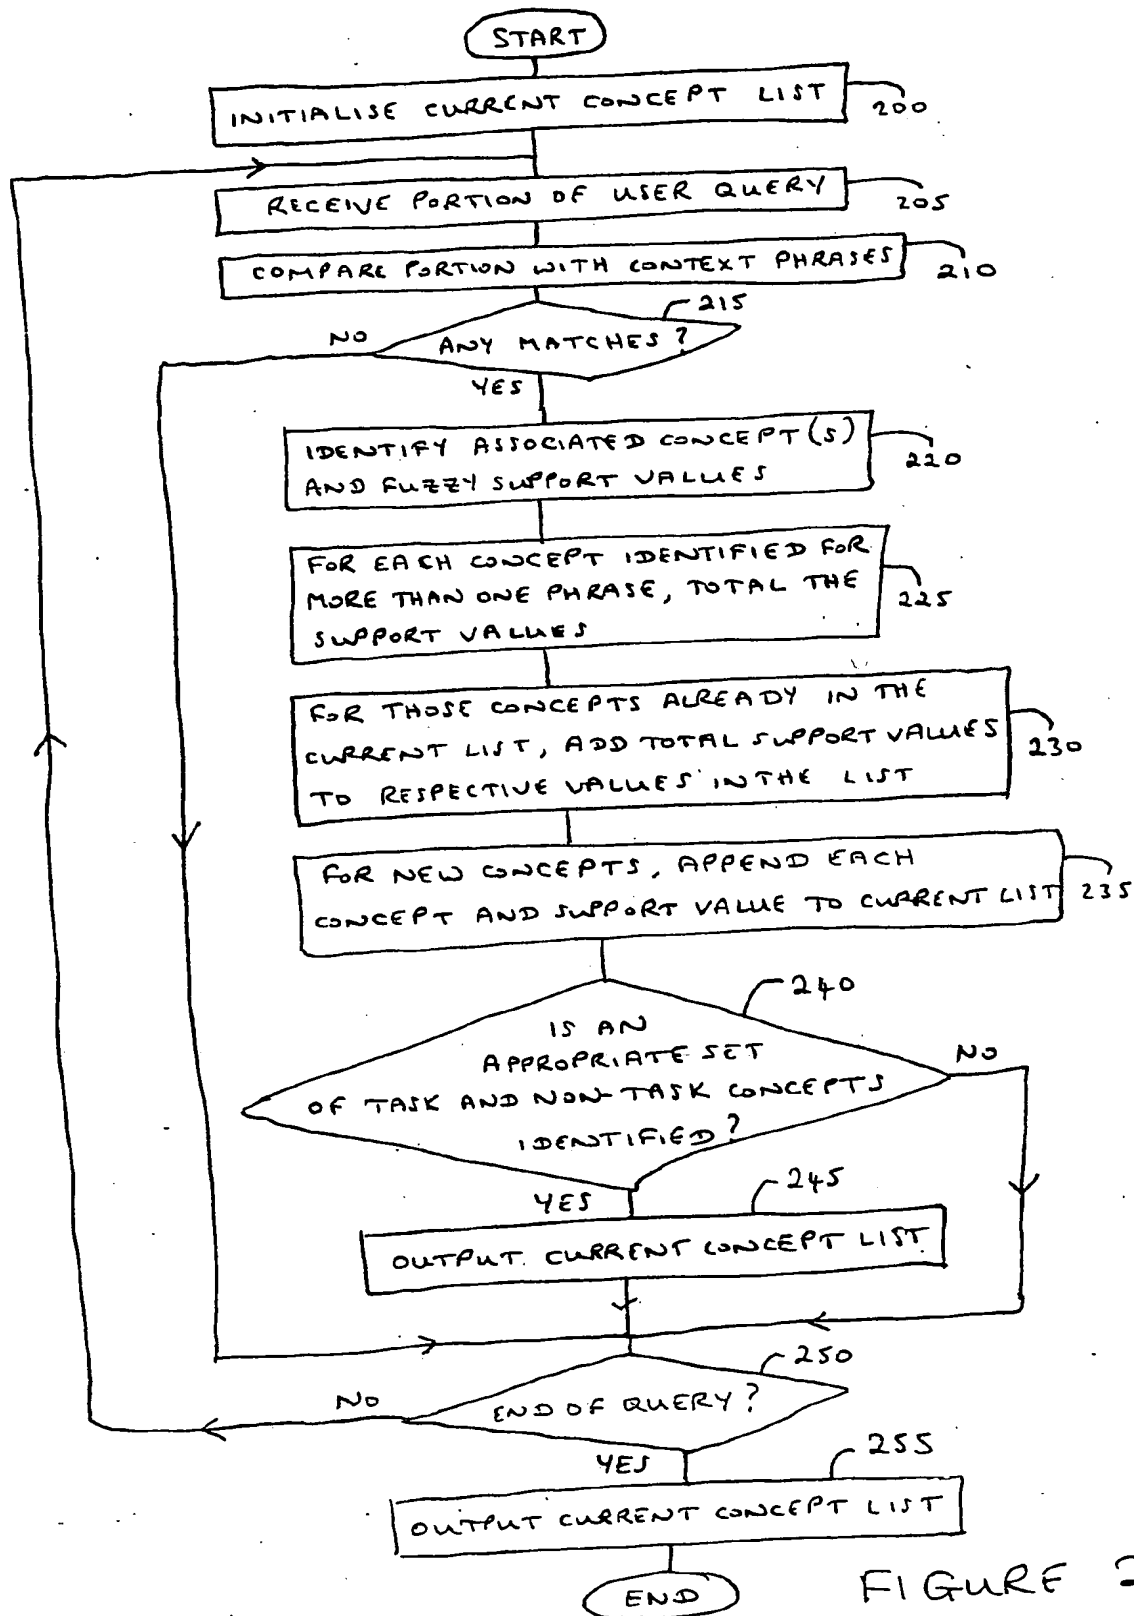 START
INITIALISE CURRENT CONCEPT LIST
200
RECEIVE PORTION OF USER QUERY
205
COMPARE PORTION WITH CONTEXT PHRASES
210
215
NO
ANY MATCHES?
YES
IDENTIFY ASSOCIATED CONCEPT(S)
AND FUZZY SUPPORT VALUES
220
FOR EACH CONCEPT IDENTIFIED FOR
MORE THAN ONE PHRASE, TOTAL THE
SUPPORT VALUES
225
FOR THOSE CONCEPTS ALREADY IN THE
CURRENT LIST, ADD TOTAL SUPPORT VALUES
TO RESPECTIVE VALUES IN THE LIST
230
FOR NEW CONCEPTS, APPEND EACH
CONCEPT AND SUPPORT VALUE TO CURRENT LIST
235
240
IS AN
APPROPRIATE SET
OF TASK AND NON-TASK CONCEPTS
IDENTIFIED?
NO
YES
245
OUTPUT CURRENT CONCEPT LIST
250
NO
END OF QUERY?
YES
255
OUTPUT CURRENT CONCEPT LIST
END
FIGURE